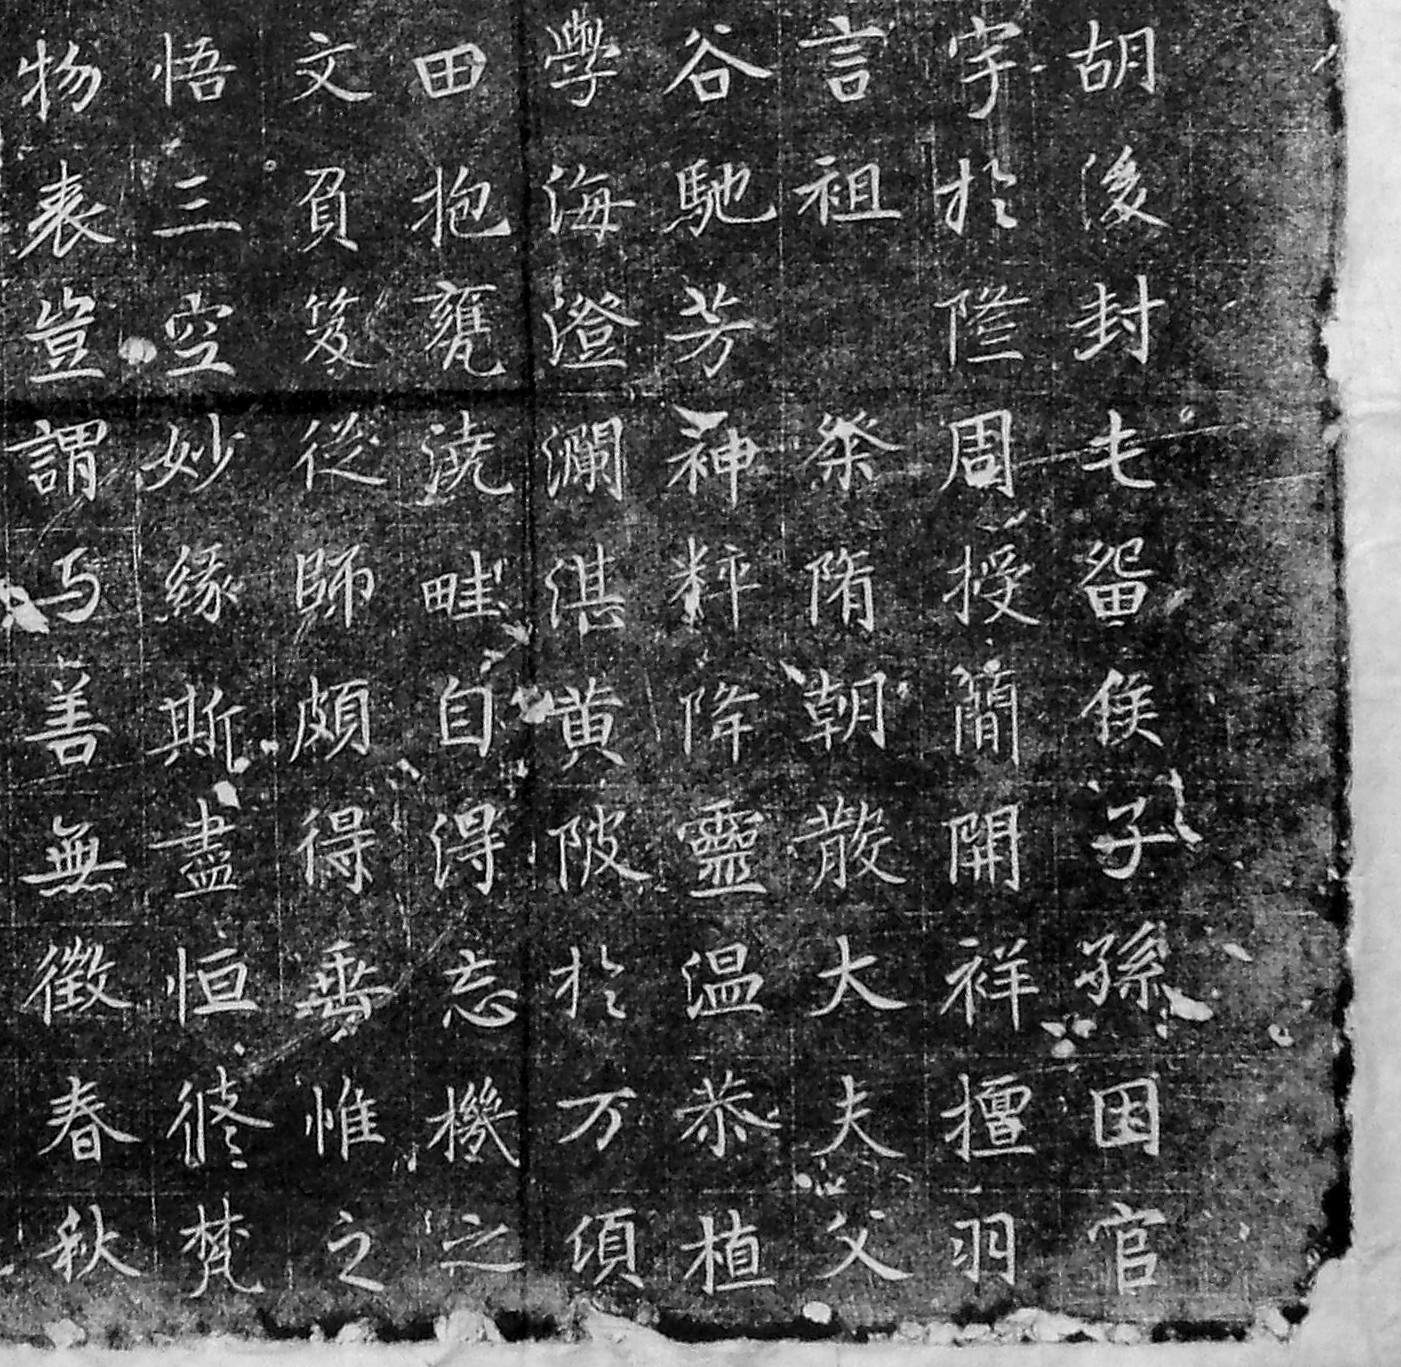 胡後封屯留侯子孫因官
宇於隆周授簡開祥擅羽
言祖　粲隋朝散大夫父
谷馳芳神粹降靈温恭植
學海澄瀾湛黄陂於万頃
田抱甕澆畦自得忘機之
文負笈從師頗得垂惟之
悟三空妙緣斯盡恒修梵
物表豈謂与善無徵春秋